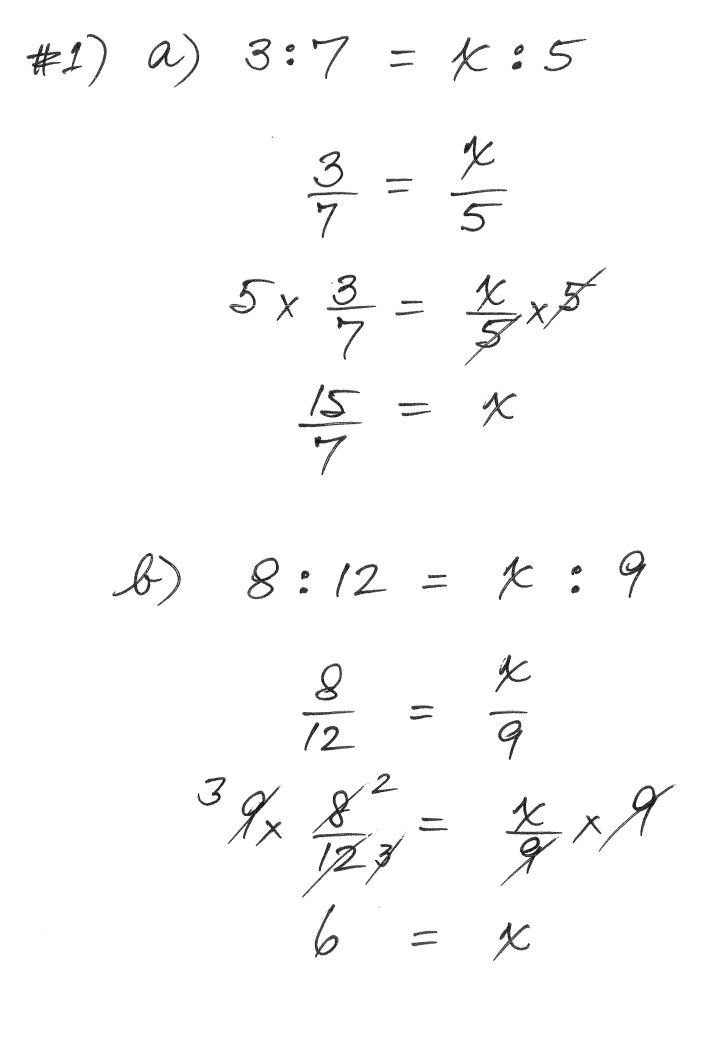 #1) a) 3:7 = x:5
3/7 = x/5
5 x 3/7 = x/5 x 5
15/7 = x
b) 8:12 = x:9
8/12 = x/9
3 9 x 8/12 2 3 = x/9 x 9
6 = x